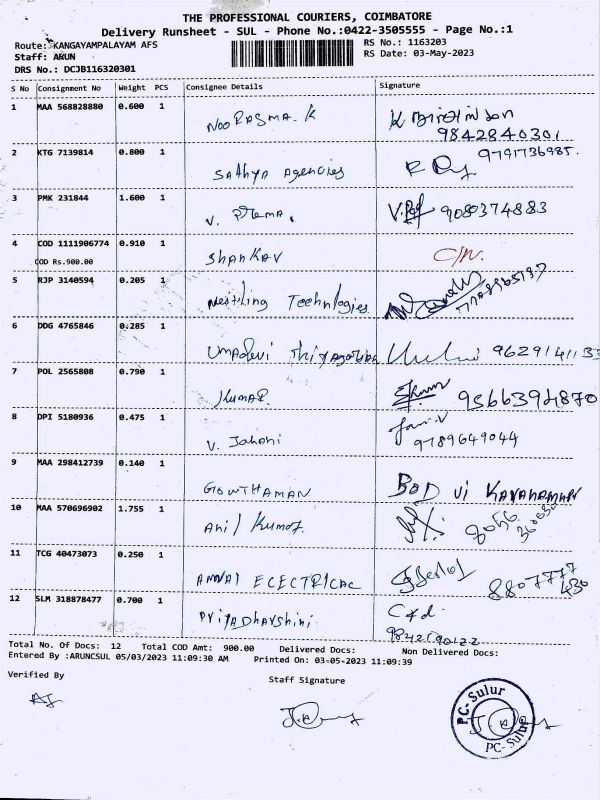 THE PROFESSIONAL COURIERS, COIMBATORE
Delivery Runsheet - SUL - Phone No.:0422-3505555 - Page No.:1
Route: KANGAYAMPALAYAM AFS
RS No.: 1163203
Staff: ARUN
RS Date: 03-May-2023
DRS No.: DCJB116320301
S No Consignment No Weight PCS Consignee Details Signature
1 MAA 568828880 0.600 1 NooRasma. K K
9842840301
2 KTG 7139814 0.800 1 Sathya Agencies 9791736985.
3 PMK 231844 1.600 1 V. Prema. 9080374883
4 COD 1111906774 0.910 1 Shankar
COD Rs.900.00
5 RJP 3140594 0.205 1 Technologies
6 DDG 4765846 0.285 1 Umadevi 962914113
7 POL 2565808 0.790 1 Kumar. 9566394870
8 DPI 5180936 0.475 1 V. Janani
9789649044
9 MAA 298412739 0.140 1 GOWTHAMAN
10 MAA 570696902 1.755 1 Anil Kumar 9056
11 TCG 40473073 0.250 1 ANNAI ELECTRICAL 8807777
430
12 SLM 318878477 0.700 1 Priyadharshini
Total No. Of Docs: 12 Total COD Amt: 900.00 Delivered Docs: Non Delivered Docs:
Entered By :ARUNCSUL 05/03/2023 11:09:30 AM Printed On: 03-05-2023 11:09:39
Verified By Staff Signature
PC-Sulur
PC-Sulur